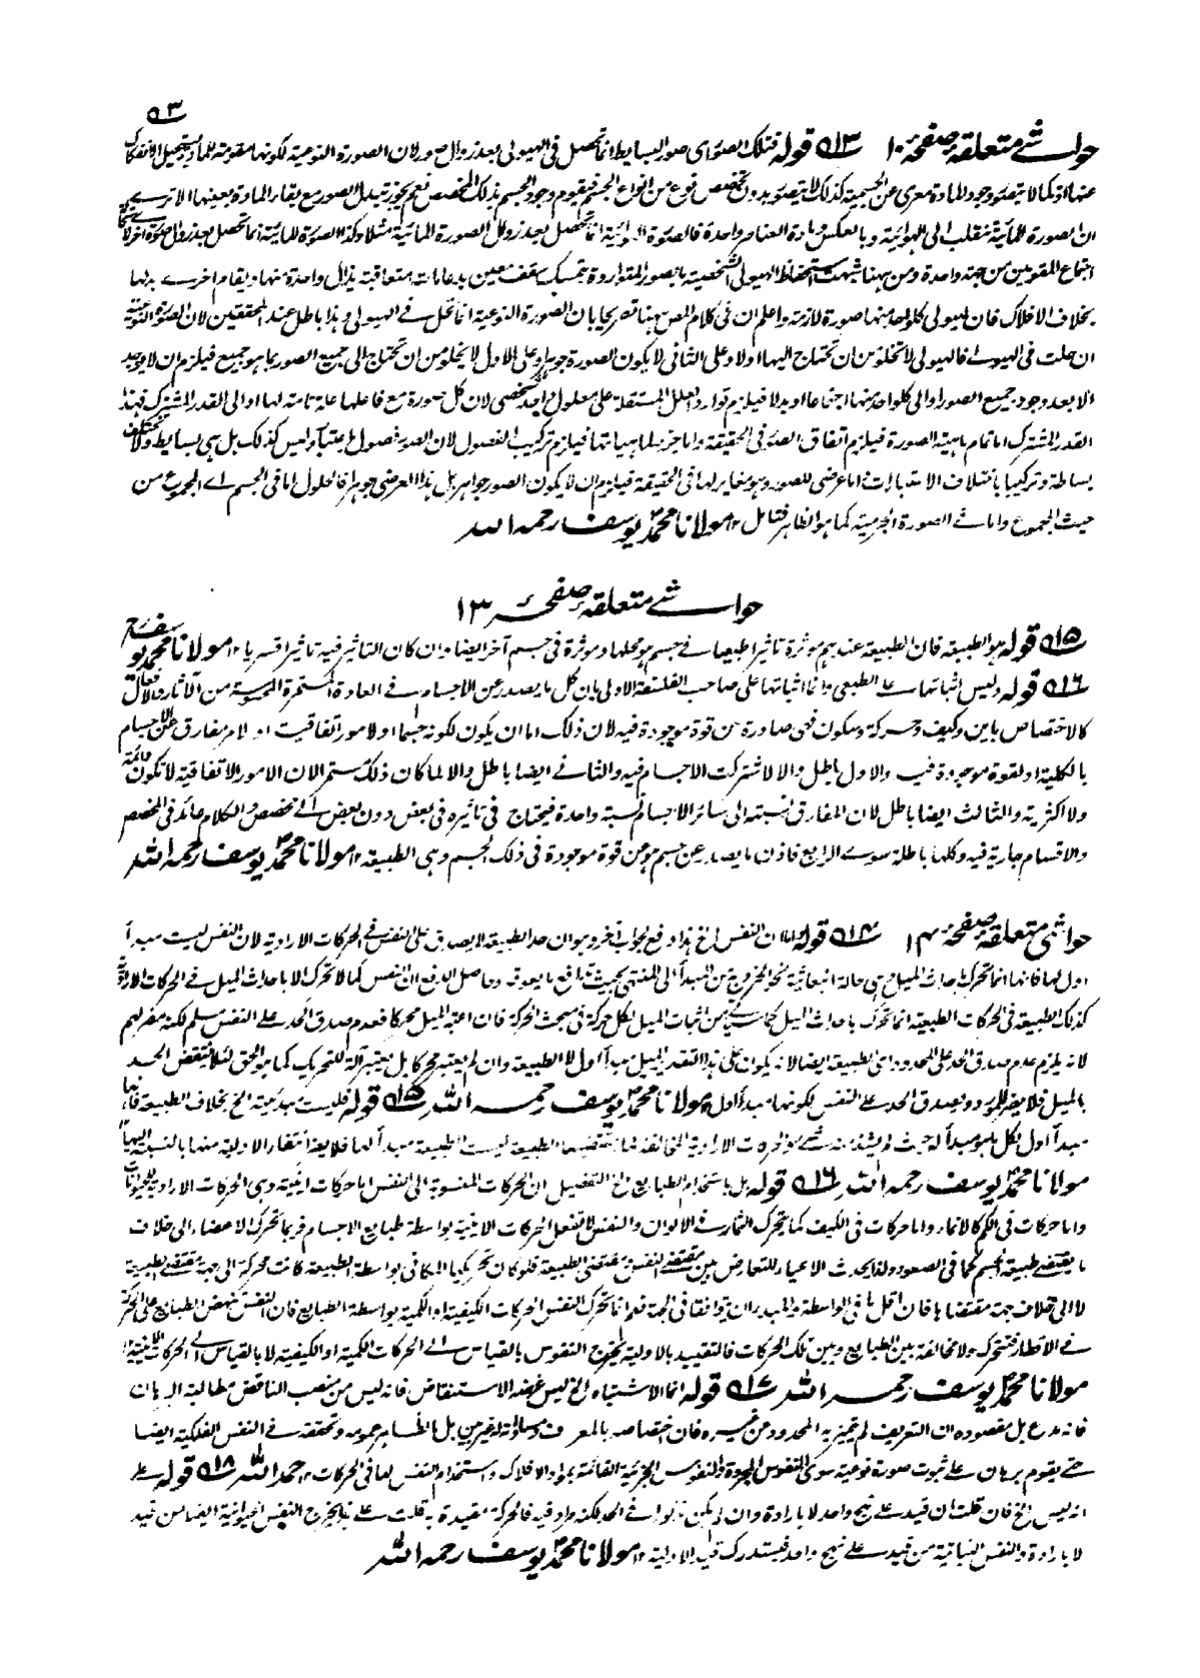 ٥٣
حواشے متعلقہ صفحہ ١٠ ٥١٣ قولہ فتلك الصورة اى صور البسايط انما تحصل فى الهيولى بعد زوال صور لان الصورة النوعية لكونها مقومة للمادة يستحيل الانفكاك
عنها اذ كما لا يتصور وجود المادة معرى عن الجسمية كذلك لا يتصور بدون تخصيص نوع من انواع الجسم فيقوم وجود الجسم بذلك المخصص نعم يجوز تبدل الصور مع بقاء المادة بعينها الا ترى
ان الصورة المائية تنقلب الى الهوائية وبالعكس مادة العناصر واحدة فالصورة الهوائية انما تحصل بعد زوال الصورة المائية مثلا وكذا الصورة المائية انما تحصل بعد زوال صورة اخرى
اجتماع المقومين من جهة واحدة ومن ههنا شبهت استحفاظ الهيولى الشخصية بالصور المتواردة بتمسك سقف معين بدعامات متعاقبة يزال واحدة منها ويقام اخرى بدلها
بخلاف الافلاك فان لهيولى كل واحد منها صورة لازمة واعلم ان فى كلام المص ههنا تصريحا بان الصورة النوعية انما تحل فى الهيولى وهذا باطل عند المحققين لان الصورة النوعية
ان حلت فى الهيولى فالهيولى لا تخلو من ان تحتاج اليها اولا وعلى الثانى لا يكون الصورة جوهرا وعلى الاول لا يخلو من ان تحتاج الى جميع الصور بما هو جميع فيلزم ان لا يوجد
الا بعد وجود جميع الصور او الى كل واحد منها اجتماعا او بدلا فيلزم توارد العلل المستقلة على معلول واحد شخصى لان كل صورة مع فاعلها علة تامة لها او الى القدر المشترك فهذا
القدر المشترك اما تمام ماهية الصورة فيلزم اتفاق الصور فى الحقيقة واما جزء لماهياتها فيلزم تركيب الفصول لان الصور فصول باعتبار وليس كذلك بل هى بسايط ولا تختلف
بساطة وتركيبا باختلاف الاعتبارات اما عرضى للصور وهو مغاير لها فى الحقيقة فيلزم ان لا يكون الصور جواهر بل هذا العرضى جوهرا فالحلول اما فى الجسم اے المجموع من
حيث المجموع واما فى الصورة الجرمية كما هو الظاهر فتامل ١٢ مولانا محمد يوسف رحمه الله
حواشے متعلقہ صفحہ ١٣
٥١٥ قولہ هو الطبيعة فان الطبيعة عندهم مؤثرة تاثيرا طبيعيا فى جسم هو محلها ومؤثرة فى جسم آخر ايضا وان كان التاثير فيه تاثيرا قسريا ١٢ مولانا محمد يوسف رح
٥١٦ قولہ وليس اثباتها على الطبعى وانما اثباتها على صاحب الفلسفة الاولى بان كل ما يصدر عن الاجسام فى العادة المستمرة المحسوسة من الآثار والافعال
كالاختصاص باين وكيف وحركة وسكون فهى صادرة عن قوة موجودة فيه لان ذلك اما ان يكون لكونه جسما او لامور اتفاقية او لامر مفارق عن الاجسام
بالكلية او لقوة موجودة فيه والاول باطل والا لاشتركت الاجسام فيه والثانى ايضا باطل والا لما كان ذلك مستمرا لان الامور الاتفاقية لا تكون دائمة
ولا اكثرية والثالث ايضا باطل لان المفارق نسبته الى سائر الاجسام نسبة واحدة فيحتاج فى تاثيره فى بعض دون بعض الى مخصص والكلام عائد فى المخصص
والاقسام جارية فيه وكلها باطلة سوى الرابع فاذن ما يصدر عن جسم هو من قوة موجودة فى ذلك الجسم وهى الطبيعة ١٢ مولانا محمد يوسف رحمه الله
حواشى متعلقہ صفحہ ١٤ ٥١٤ قولہ اما ان النفس الخ هذا دفع بجواب آخر وهو ان حد الطبيعة لا يصدق على النفس فى الحركات الارادية لان النفس ليست مبدأ
اول لها فانها انما تحرك باحداث الميل هى حالة انبعاثية نحو الخروج من المبدأ الى المنتهى بحيث تدافع ما يعوقه وحاصل الدفع ان النفس كما لا تحرك الا باحداث الميل فى الحركات الارادية
كذلك الطبيعة فى الحركات الطبيعية انما تحرك باحداث الميل كما سياتى من اثبات الميل لكل حركة فى مبحث الحركة فان اعتبر الميل محركا فعدم صدق الحد على النفس مسلم لكنه مضر لهم
لانه يلزم عدم صدق الحد على المحدود اى الطبيعة ايضا لانه يكون على هذا التقدير الميل مبدأ اول لا الطبيعة وان لم يعتبر محركا بل يعتبر آلة للتحريك كما هو الحق لئلا ينتقض الحد
بالميل فلا يضر المورد ويصدق الحد على النفس لكونها مبدأ اول ١٢ مولانا محمد يوسف رحمه الله ٥١٥ قولہ فليست مبدئية الخ بخلاف الطبيعة فانها
مبدأ اول لكل ما هو مبدأ له حيث
مولانا محمد يوسف رحمه الله ٥١٦ قولہ بل باستخدام الطبايع الخ التفصيل ان الحركات المنسوبة الى النفس اما حركات اينية وهى الحركات الارادية للحيوانات
واما حركات فى الكم كالانماء واما حركات فى الكيف كما يتحرك الثمار فى الالوان والنفس لا تفعل الحركات الاينية بواسطة طبايع الاجسام فربما تحرك الاعضاء الى خلاف
ما يقتضيه طبيعة الجسم كما فى الصعود ولذا يحدث الاعياء للتعارض بين مقتضى النفس ومقتضى الطبيعة فلو كان تحريكها المكانى بواسطة الطبيعة كانت محركة الى جهة مقتضى الطبيعة
لا الى خلاف جهة مقتضاها فان اقل ما فى الواسطة والمبدأ ان يتوافقا فى الجهة نعم انما تحرك النفس الحركات الكيفية او الكمية بواسطة الطبايع فان النفس تنهض الطبايع على الحركة
فى الاقطار فتتحرك ولا مخالفة بين الطبايع وبين تلك الحركات فالتقييد بالاولية يخرج النفوس بالقياس الى الحركات الكمية او الكيفية لا بالقياس الى الحركات الاينية ١٢
مولانا محمد يوسف رحمه الله ٥١٧ قولہ انما الاشتباه الخ ليس غرضه الاستنقاض فانه ليس من منصب الناقض مطالبة البرهان
فانه مدع بل مقصوده ان التعريف لم يتميز به المحدود من غيره فان اختصاصه بالمعرف ومساواته له غير بين بل الظاهر عمومه وتحققه فى النفس الفلكية ايضا
حتى يقوم برهان على ثبوت صورة نوعية سوى النفوس المجردة والنفوس الجزئية القائمة بمواد الافلاك واستخدام النفس لها فى الحركات ١٢ رحمه الله ٥١٨ قولہ على
انه ليس الخ فان قلت ان قيد على نهج واحد لا بارادة وان لم يكن مذكورا فى الحد لكنه مراد فيه فالحركة مقيدة به قلت على هذا يخرج النفس الحيوانية ايضا من قيد
لا بارادة والنفس النباتية من قيد على نهج واحد فيستدرك قيد الاولية ١٢ مولانا محمد يوسف رحمه الله